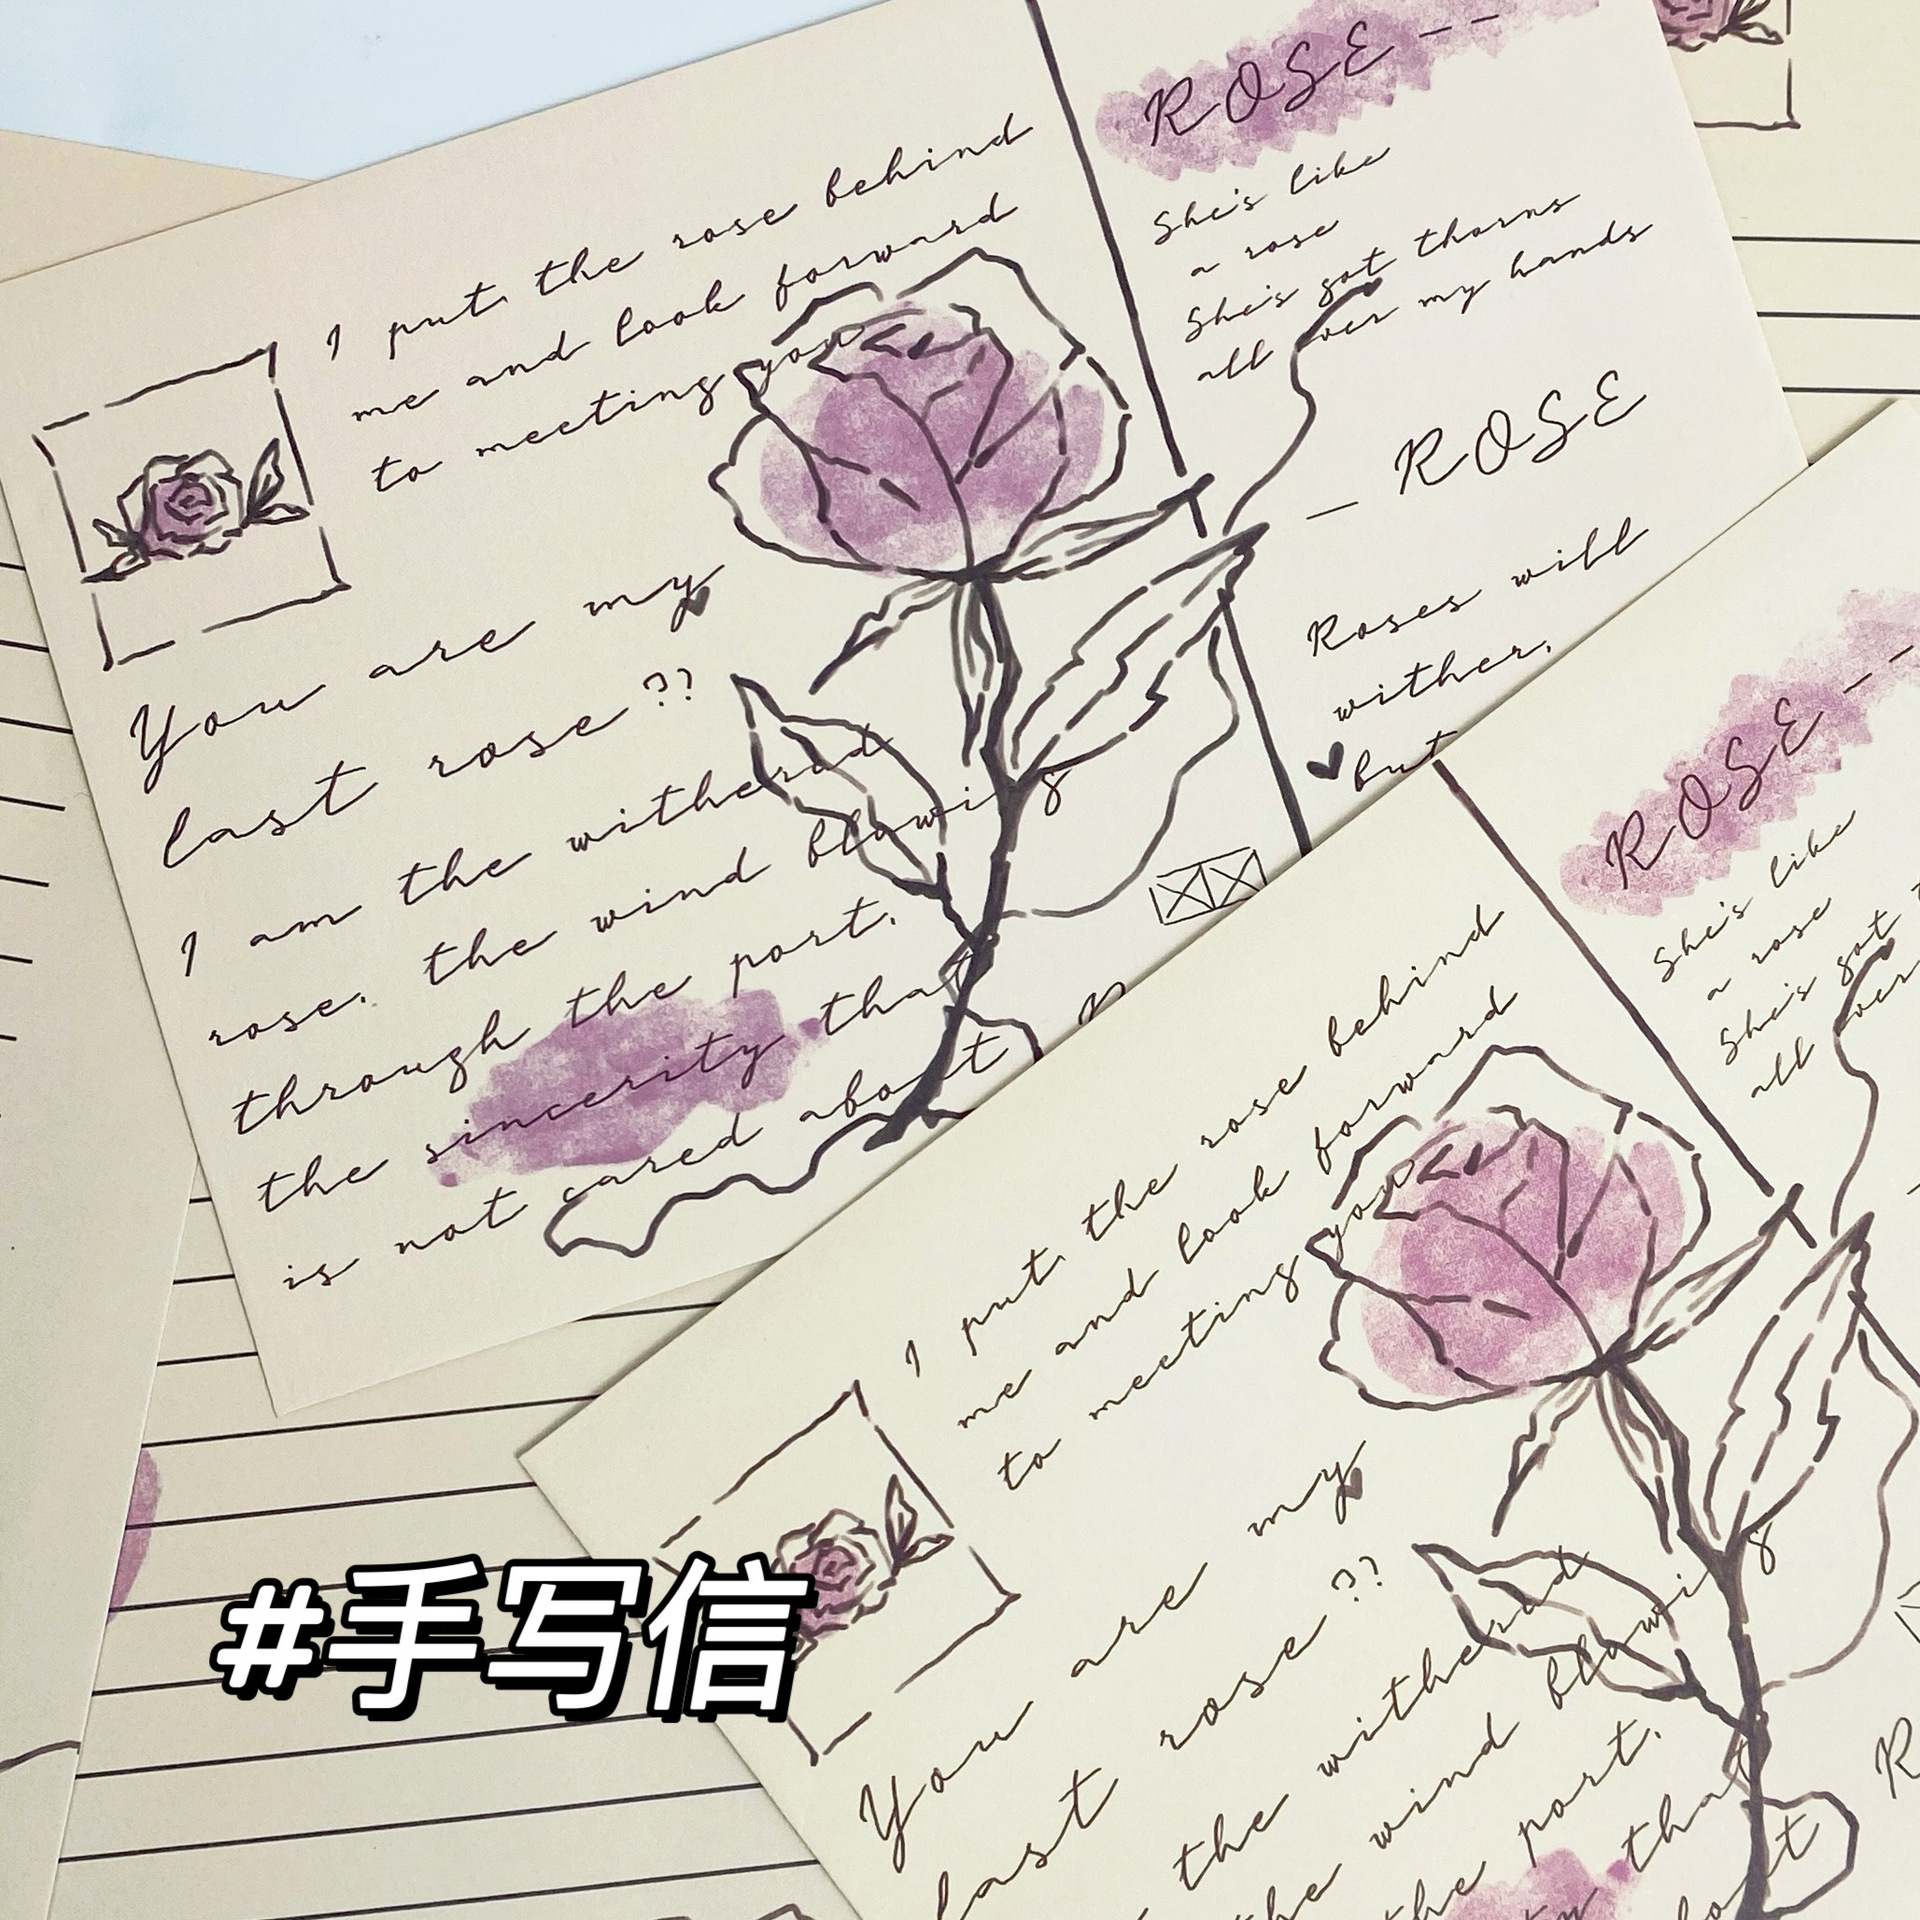 I put the rose behind
me and look forward
to meeting you
You are my
last rose??
I am the withered
rose. the wind blowing
through the port.
the sincerity that
is not cared about
ROSE--
She's like
a rose
She's got thorns
all over my hands
— ROSE
Roses will
wither,
but
I put the rose behind
me and look forward
to meeting you
You are my
last rose??
the withered
the wind blowing
the port.
that
ROSE--
She's like
a rose
She's got
all over
#手写信